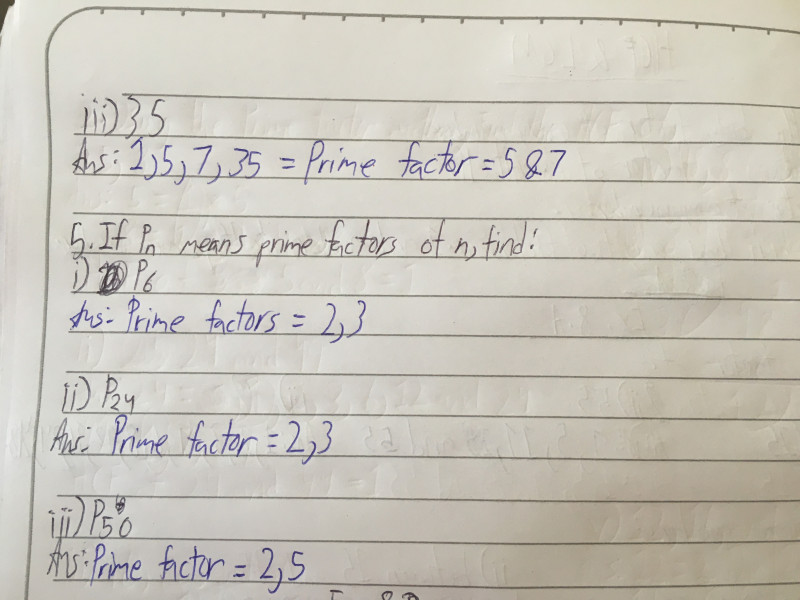 iii) 35
Ans: 1,5,7,35 = Prime factor = 5 & 7
5. If Pn means prime factors of n, find:
i) P6
Ans:- Prime factors = 2,3
ii) P24
Ans:- Prime factor = 2,3
iii) P50
Ans:- Prime factor = 2,5